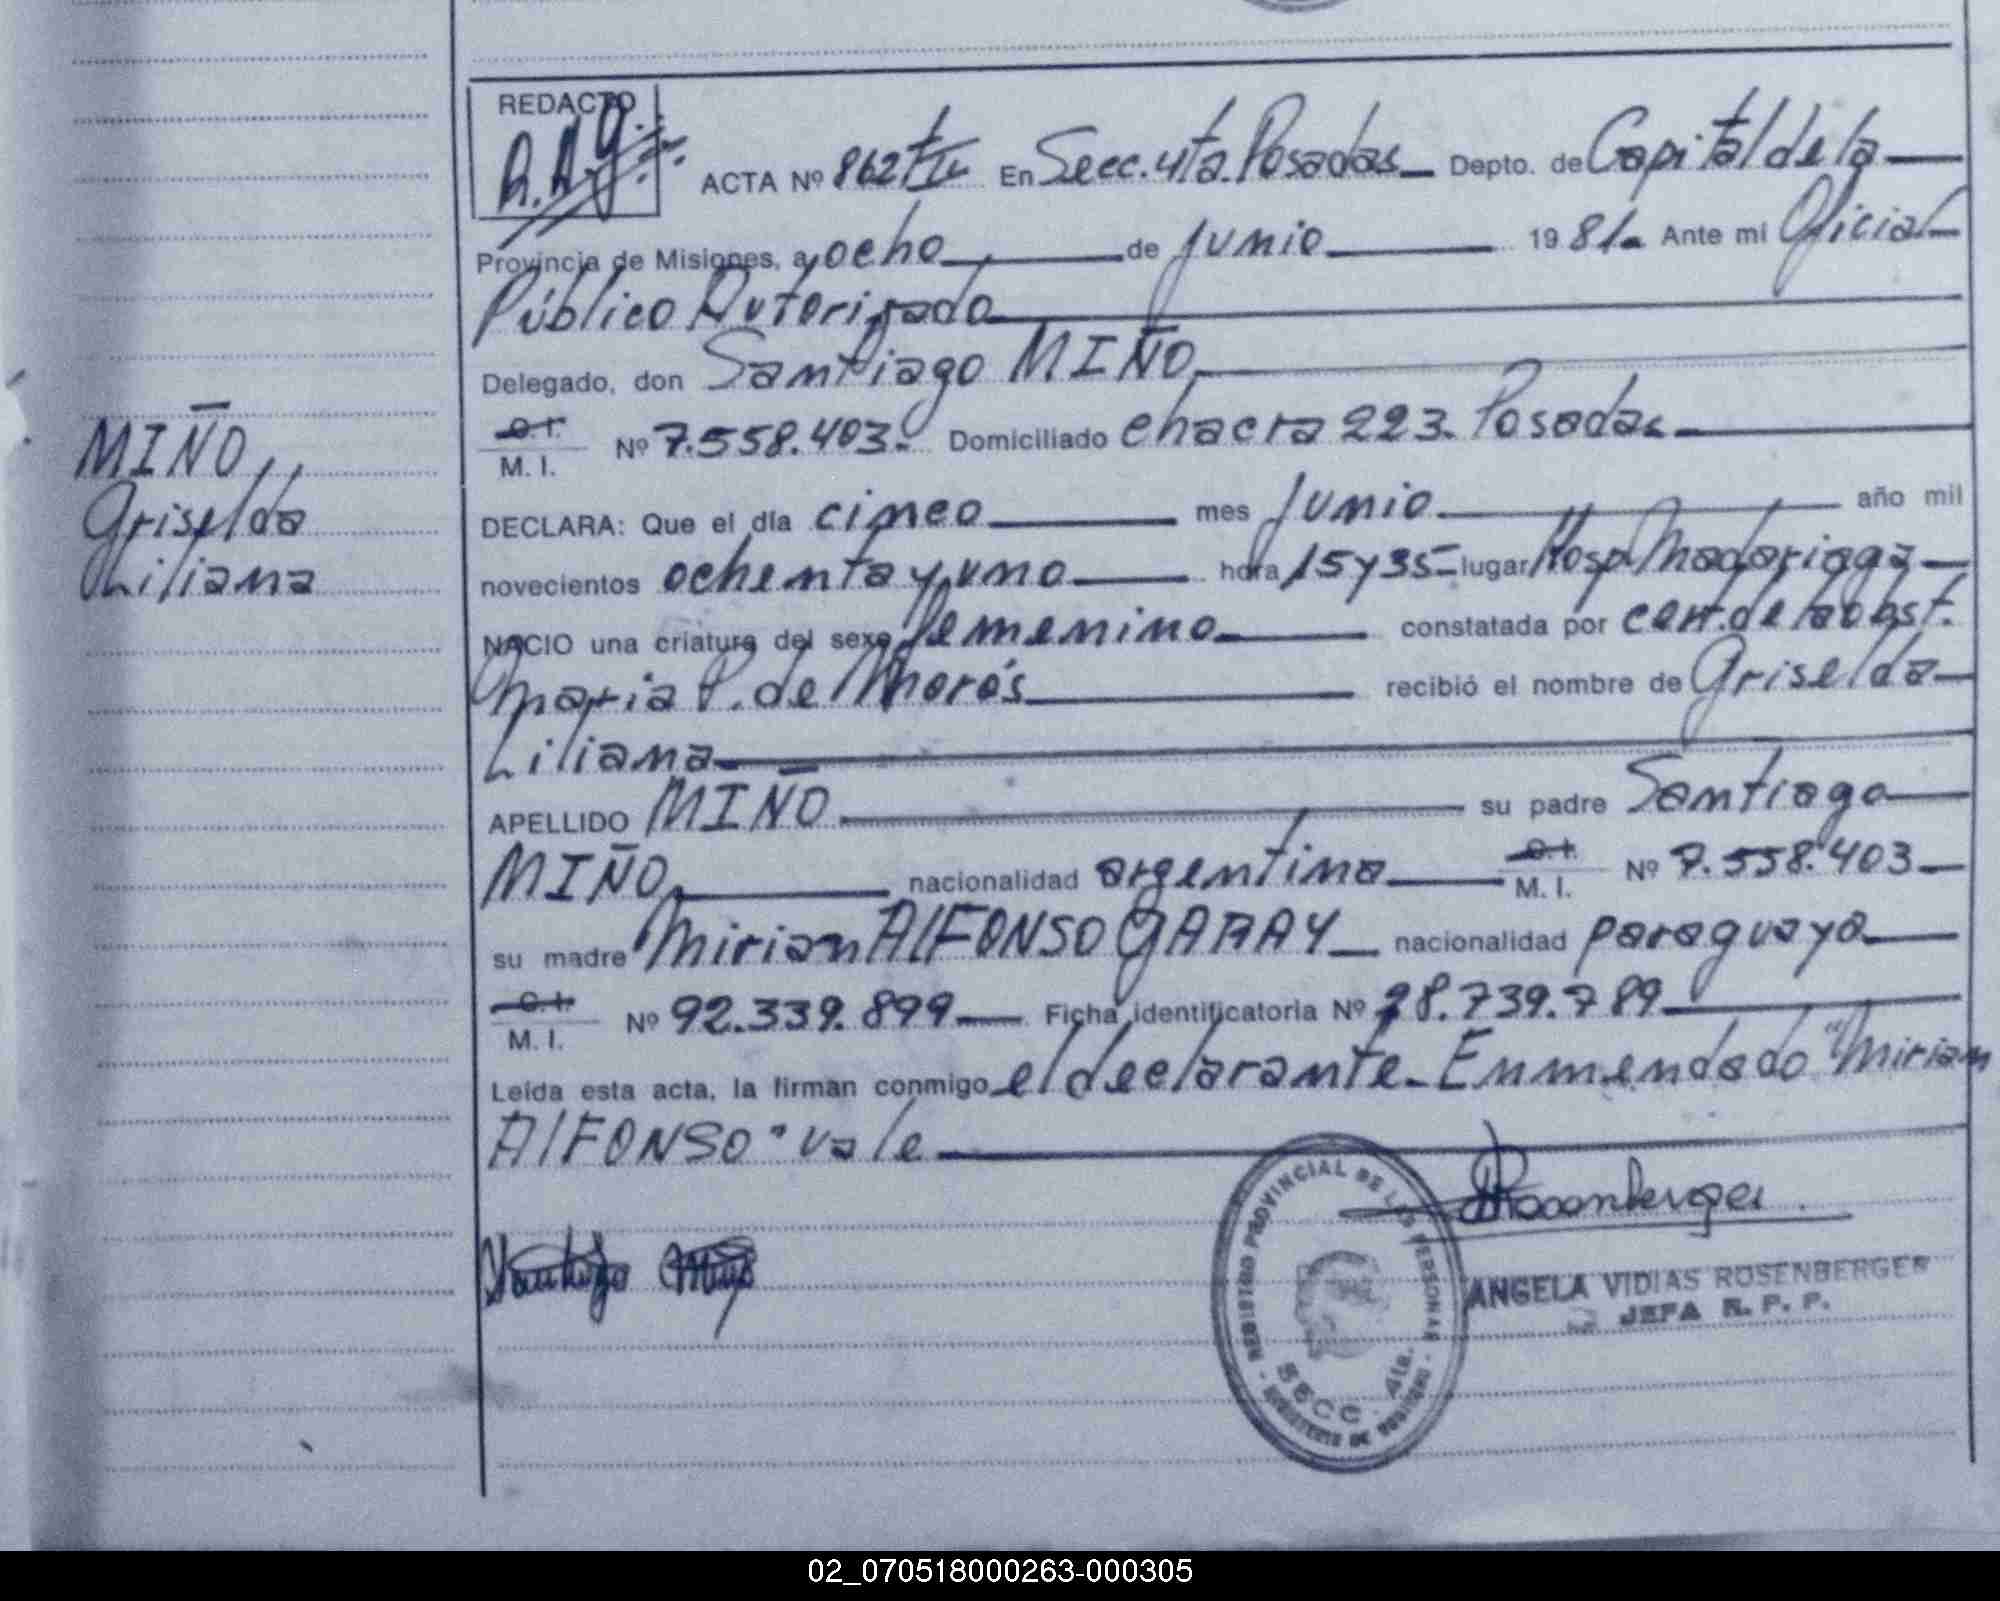 REDACTO
ACTA Nº 862 En Secc. 4ta. Posadas Depto. de Capital de la
Provincia de Misiones, a ocho de Junio 1981. Ante mi Oficial
Público Autorizado
Delegado, don Santiago MIÑO
C. I.
M. I. Nº 7.558.403. Domiciliado chacra 223. Posadas
MIÑO,
Griselda
Liliana
DECLARA: Que el día cinco mes Junio año mil
novecientos ochenta y uno hora 15 y 35 lugar Hosp. Madariaga
NACIO una criatura del sexo femenino constatada por cert. de la obst.
Maria P. de Morós recibió el nombre de Griselda
Liliana
APELLIDO MIÑO su padre Santiago
MIÑO nacionalidad argentina C. I. M. I. Nº 7.558.403
su madre Mirian AlFONSO GARAY nacionalidad paraguaya
C. I.
M. I. Nº 92.339.899 Ficha identificatoria Nº 28.739.789
Leída esta acta, la firman conmigo el declarante. Enmendado "Mirian
AlFONSO" vale
Santiago Miño
Rosenberger
REGISTRO PROVINCIAL DE LAS PERSONAS
SECC. 4ta.
ANGELA VIDIAS ROSENBERGER
JEFA R. P. P.
02_070518000263-000305